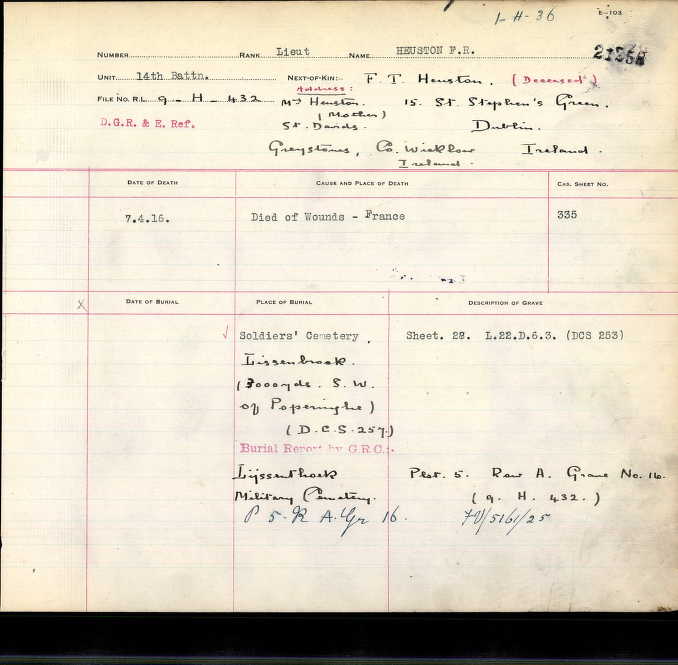 1-H-36
E-103
NUMBER RANK Lieut NAME HEUSTON F.R.
UNIT 14th Battn. NEXT-OF-KIN:- F. T. Heuston. (Deceased)
Address:
FILE NO. R.L. 9-H-432 Mrs Heuston. 15. St. Stephen's Green.
(Mother)
D.G.R. & E. Ref. St. Davids. Dublin.
Greystones, Co. Wicklow Ireland.
Ireland.
DATE OF DEATH CAUSE AND PLACE OF DEATH CAS. SHEET NO.
7.4.16. Died of Wounds - France 335
X DATE OF BURIAL PLACE OF BURIAL DESCRIPTION OF GRAVE
√ Soldiers' Cemetery, Sheet. 28. L.22.D.6.3. (DCS 253)
Lissenbrook.
(3000yds. S.W.
of Poperinghe)
(D.C.S. 257.)
Burial Report by G.R.C.:-
Lijssenthoek Plot. 5. Row A. Grave No. 16.
Military Cemetery. (9. H. 432.)
P 5. R A. Gr 16.